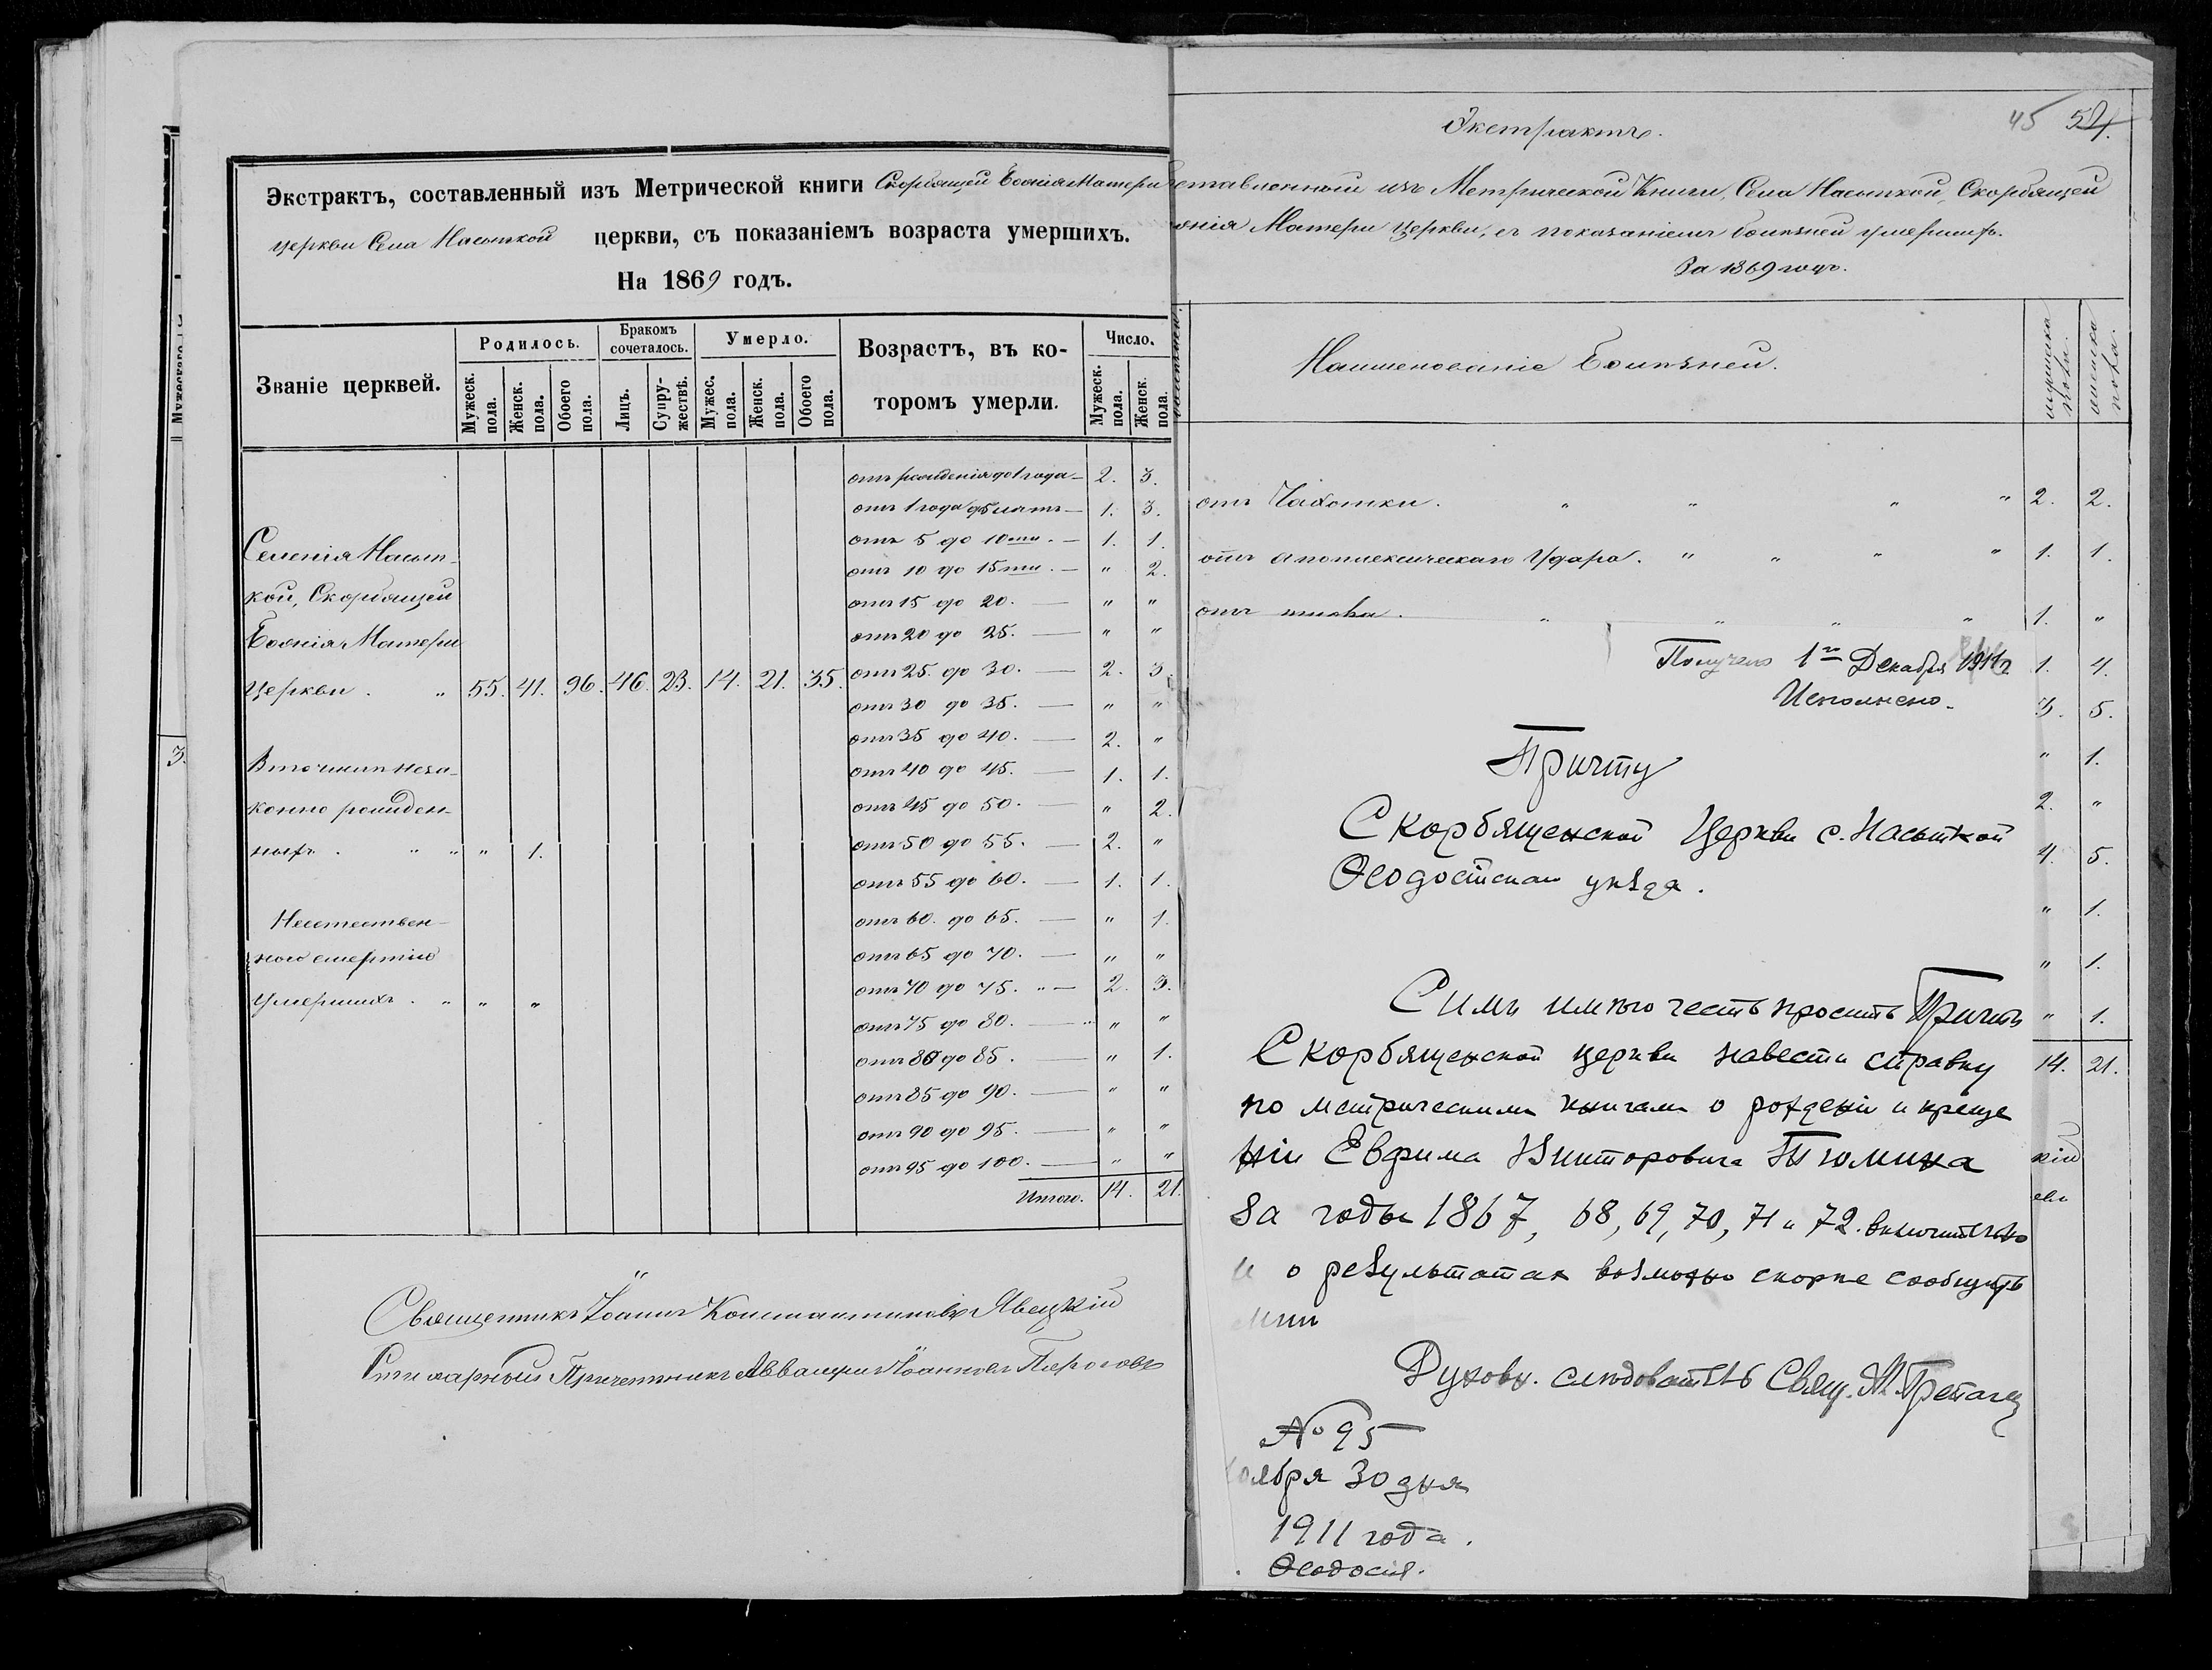 Экстрактъ, составленный изъ Метрической книги Скорбящей Божія Матери
церкви Села Насыпкой церкви, съ показаніемъ возраста умершихъ.
На 1869 годъ.
Званіе церквей.
Родилось.
Бракомъ сочеталось.
Умерло.
Возрастъ, въ которомъ умерли.
Число.
Мужеск. пола.
Женск. пола.
Обоего пола.
Лицъ.
Супружествъ.
Мужес. пола.
Женск. пола.
Обоего пола.
Мужеск. пола.
Женск. пола.
Селенія Насып-
кой, Скорбящей
Божія Матери
Церкви . " 55. 41. 96. 46. 23. 14. 21. 35.
В томъ числѣ неза-
конно рожден-
ныхъ . " " " 1.
Неестествен-
ною смертію
умершихъ . " " "
отъ рожденія до 1 года — 2. 3.
отъ 1 года до 5 лѣтъ — 1. 3.
отъ 5 до 10ти. — 1. 1.
отъ 10 до 15ти. — " 2.
отъ 15 до 20. — " "
отъ 20 до 25. — " "
отъ 25. до 30. — 2. 3.
отъ 30 до 35. — " "
отъ 35 до 40. — 2. "
отъ 40 до 45. — 1. 1.
отъ 45 до 50. — " 2.
отъ 50 до 55. — 2. "
отъ 55 до 60. — 1. 1.
отъ 60. до 65. — " 1.
отъ 65 до 70. — " "
отъ 70 до 75. " — 2. 3.
отъ 75 до 80. — " "
отъ 80 до 85. — " 1.
отъ 85 до 90. — " "
отъ 90 до 95. — " "
отъ 95 до 100. — " "
Итого. 14. 21.
Священникъ Іоаннъ Константиновъ Явецкій
Причетникъ Іоанновъ Пироговъ
3.
45 54.
Экстрактъ.
ставленный изъ Метрической Книги, Села Насыпкой, Скорбящей
жія Матери Церкви, съ показаніемъ болѣзней умершихъ.
За 1869 годъ.
Наименованіе Болѣзней.
мужеска пола.
женска пола.
отъ Чахотки. " " " " 2. 2.
отъ Апоплексическаго Удара. " " " " 1. 1.
отъ тифа. " " " " 1. "
1. 4.
3. 5.
" 1.
2. "
4. 5.
" 1.
" 1.
" 1.
14. 21.
кій
Получено 1го Декабря 1911 г.
Исполнено.
Причту
Скорбященской Церкви с. Насыпкой
Ѳеодосійскаго уѣзда.
Симъ имѣю честь просить Причтъ
Скорбященской церкви навести справку
по метрическимъ книгамъ о рожденіи и креще
ніи Ефрима Викторовича Тюмина
за годы 1867, 68, 69, 70, 71 и 72. включительно
и о результатах возможно скорѣе сообщить
мнѣ
Духовн. слѣдователь Свящ.
№ 95
оября 30 дня
1911 года.
Ѳеодосія.